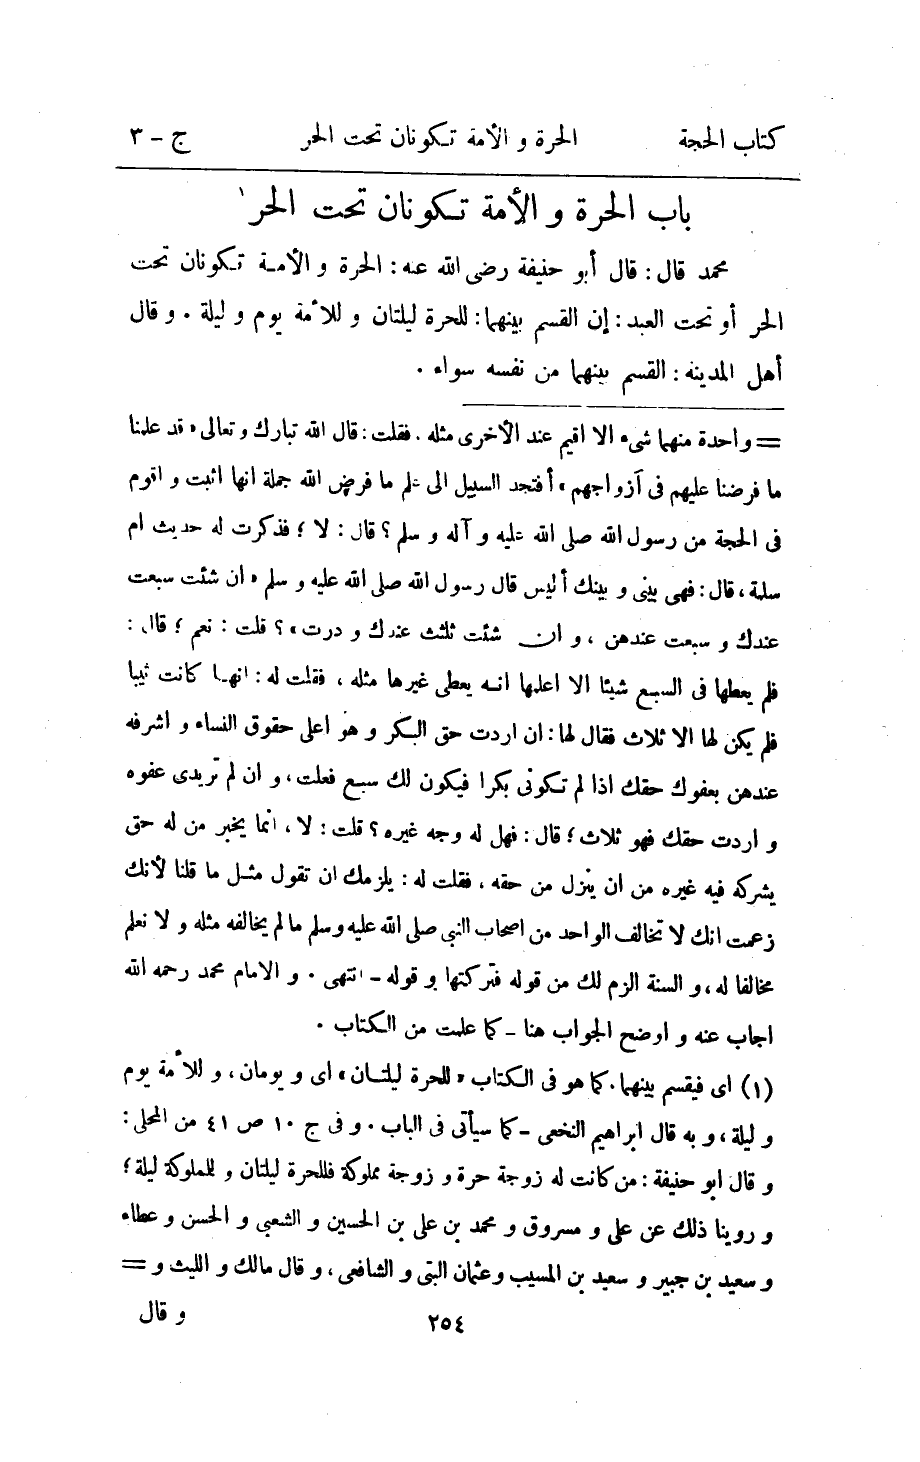 كتاب الحجة الحرة و الأمة تكونان تحت الحر ج - ٣
باب الحرة و الأمة تكونان تحت الحر ١
محمد قال : قال أبو حنيفة رضى الله عنه : الحرة و الأمة تكونان تحت
الحر أو تحت العبد : إن القسم بينهما : للحرة ليلتان و للأمة يوم و ليلة . و قال
أهل المدينة : القسم بينهما من نفسه سواء .
= واحدة منهما شىء الا اقيم عند الأخرى مثله . فقلت : قال الله تبارك و تعالى « قد علمنا
ما فرضنا عليهم فى أزواجهم » أفتجد السبيل الى علم ما فرض الله جملة انها اثبت و اقوم
فى الحجة من رسول الله صلى الله عليه و آله و سلم ؟ قال : لا ؛ فذكرت له حديث ام
سلمة ، قال : فهى بينى و بينك أليس قال رسول الله صلى الله عليه و سلم « ان شئت سبعت
عندك و سبعت عندهن ، و ان شئت ثلثت عندك و درت » ؟ قلت : نعم ؛ قال :
فلم يعطها فى السبع شيئا الا اعلمها انه يعطى غيرها مثله ، فقلت له : انها كانت ثيبا
فلم يكن لها الا ثلاث فقال لها : ان اردت حق البكر و هو اعلى حقوق النساء و اشرفه
عندهن بعفوك حقك اذا لم تكونى بكرا فيكون لك سبع فعلت ، و ان لم تريدى عفوه
و اردت حقك فهو ثلاث ؛ قال : فهل له وجه غيره ؟ قلت : لا ، انما يخبر من له حق
يشركه فيه غيره من ان ينزل من حقه ، فقلت له : يلزمك ان تقول مثل ما قلنا لأنك
زعمت انك لا تخالف الواحد من اصحاب النبى صلى الله عليه وسلم ما لم يخالفه مثله و لا نعلم
مخالفا له ، و السنة الزم لك من قوله فتركتها و قوله - انتهى . و الامام محمد رحمه الله
اجاب عنه و اوضح الجواب هنا - كما علمت من الكتاب .
(١) اى فيقسم بينهما . كما هو فى الكتاب « للحرة ليلتان » اى و يومان ، و للأمة يوم
و ليلة ، و به قال ابراهيم النخعى - كما سيأتى فى الباب . و فى ج ١٠ ص ٤١ من المحلى :
و قال ابو حنيفة : من كانت له زوجة حرة و زوجة مملوكة فللحرة ليلتان و للملوكة ليلة ؛
و روينا ذلك عن على و مسروق و محمد بن على بن الحسين و الشعبى و الحسن و عطاء
و سعيد بن جبير و سعيد بن المسيب و عثمان البتى و الشافعى ، و قال مالك و الليث و =
٢٥٤ و قال